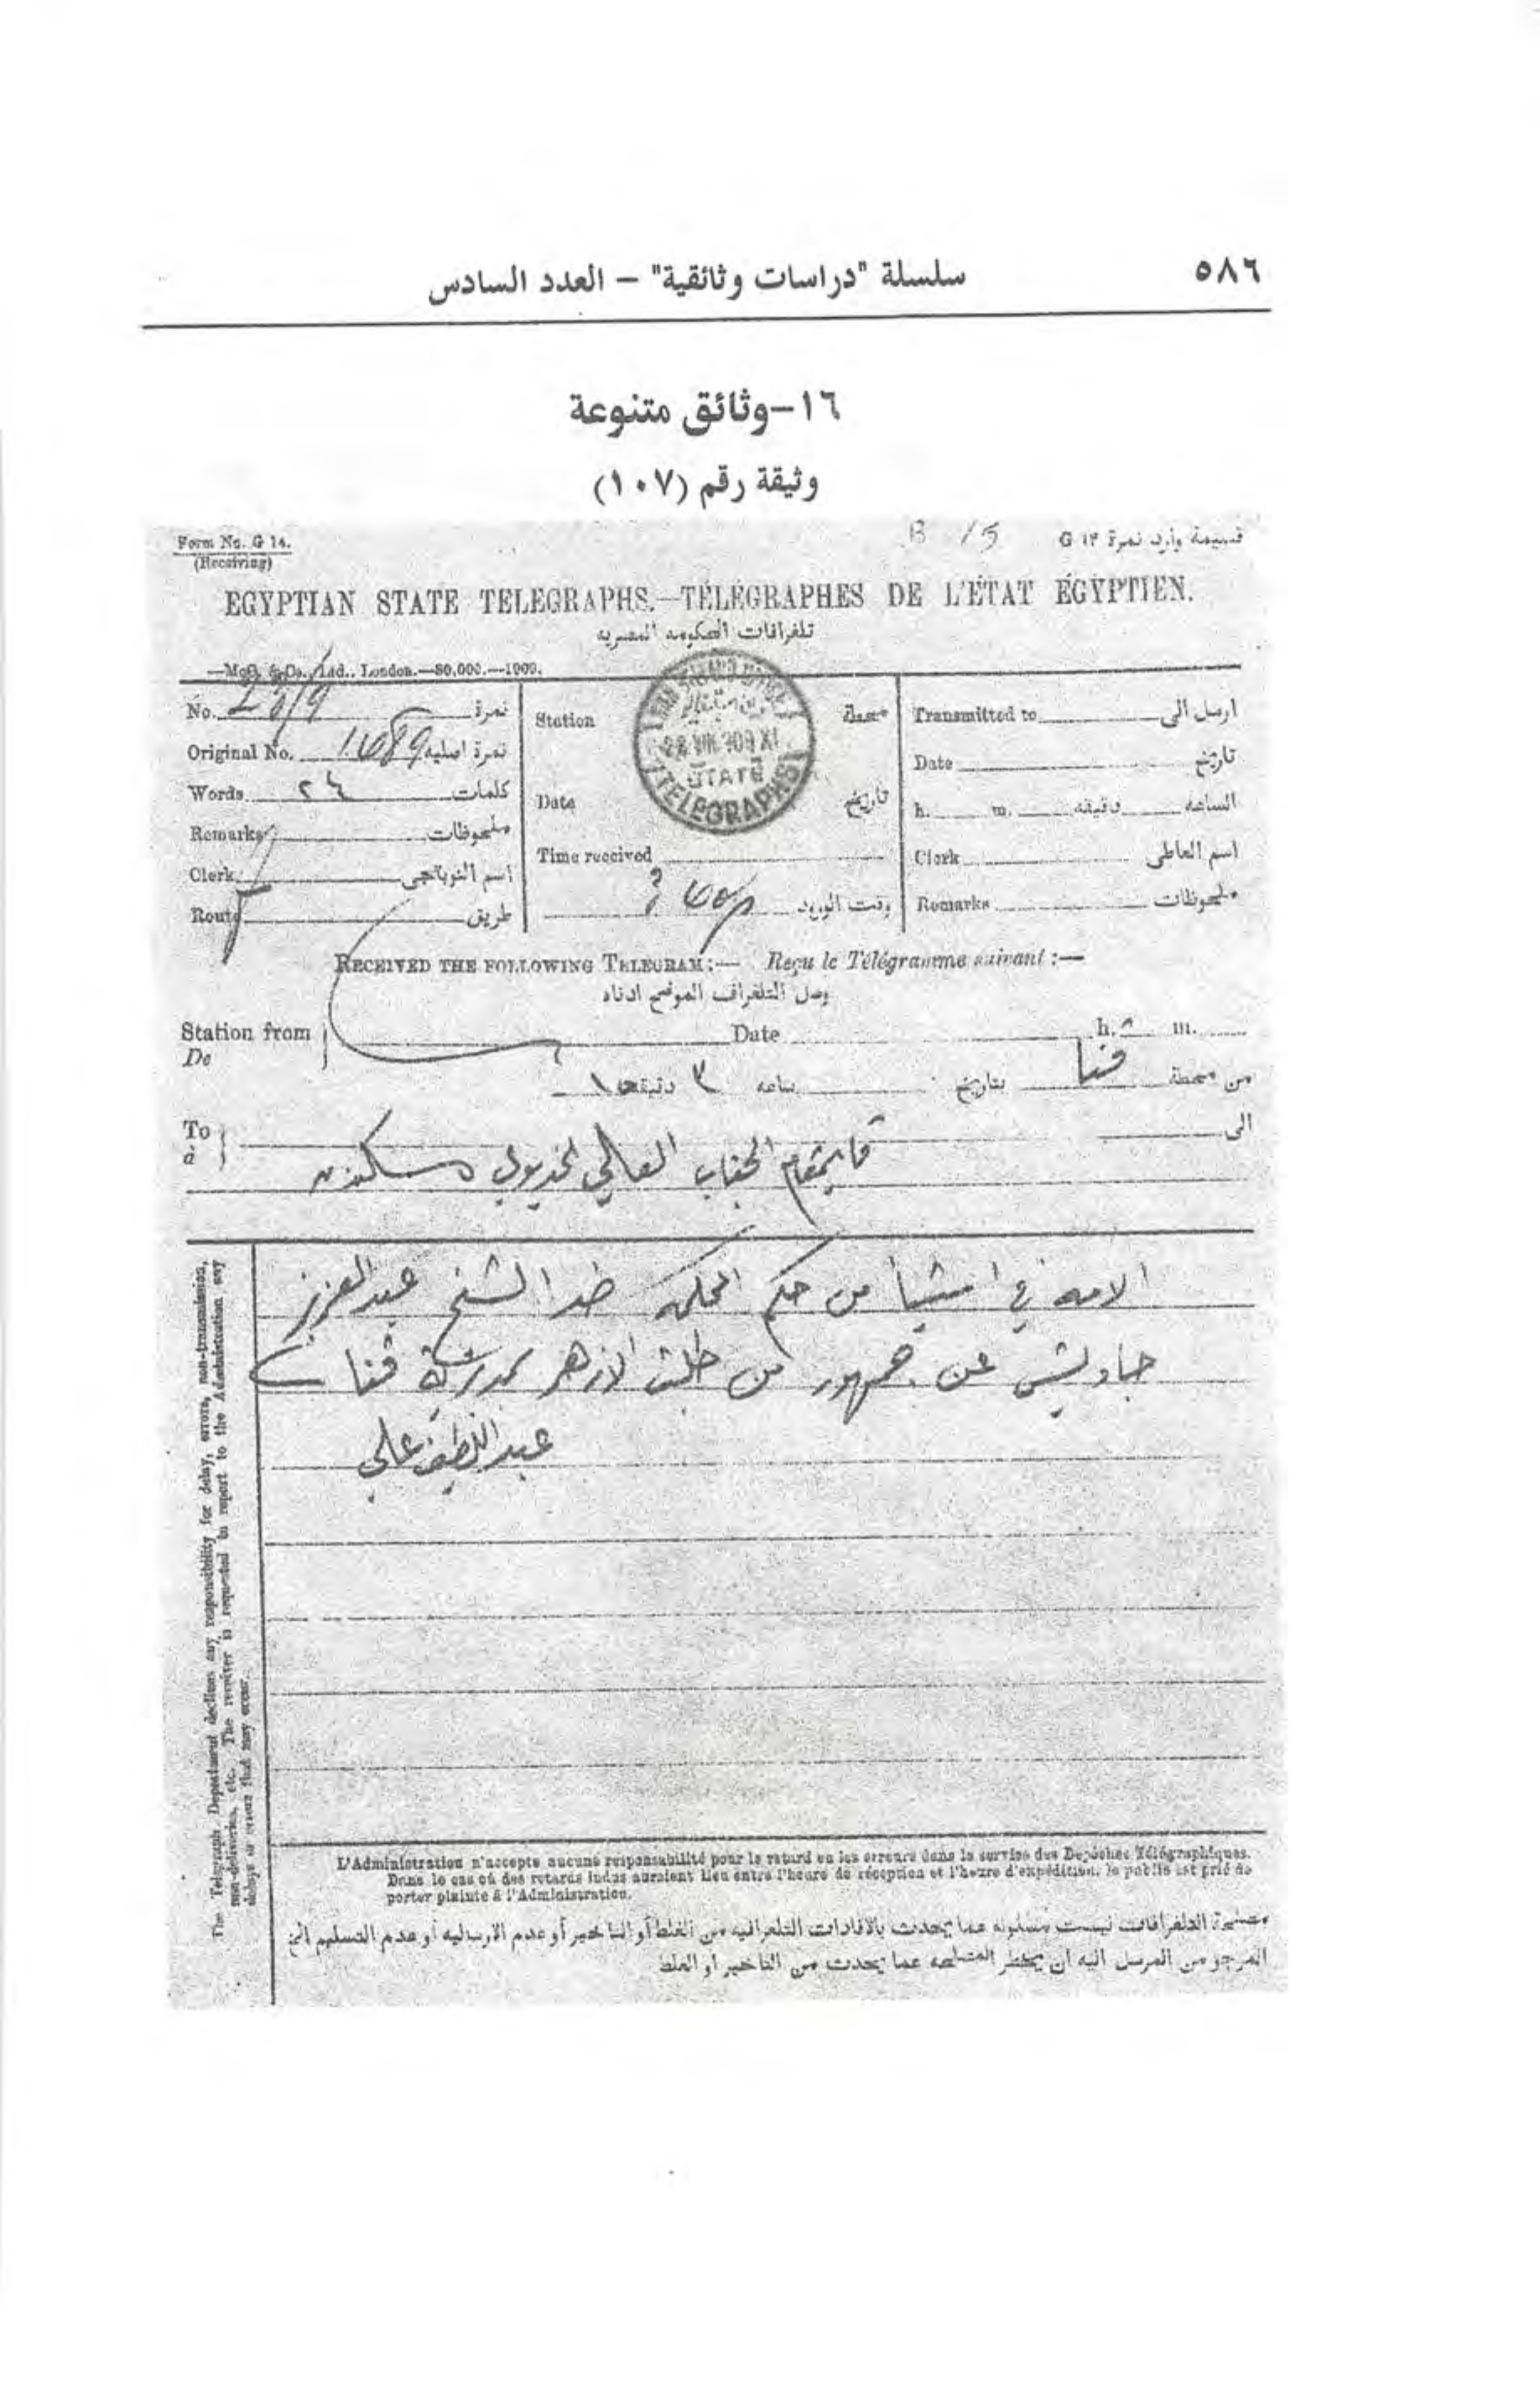 ٥٨٦
سلسلة "دراسات وثائقية" – العدد السادس
١٦-وثائق متنوعة
وثيقة رقم (١٠٧)
Form No. G 14.
(Receiving)
B 15
قسيمة وارد نمرة ١٣ G
EGYPTIAN STATE TELEGRAPHS.—TÉLÉGRAPHES DE L'ÉTAT ÉGYPTIEN.
تلغرافات الحكومه المصريه
—McC. & Co., Ltd., London.—80,000.—1909.
No. نمرة
Original No. نمرة اصليه
Words ٢٤ كلمات
Remarks ملحوظات
Clerk اسم النوباتجى
Route طريق
Station محطة
STATE
TELEGRAPHS
Date تاريخ
Time received
وقت الورود
Transmitted to ارسل الى
Date تاريخ
h. m. دقيقه الساعه
Clerk اسم العاطى
Remarks ملحوظات
RECEIVED THE FOLLOWING TELEGRAM:— Reçu le Télégramme suivant :—
وصل التلغراف الموضح ادناه
Station from Date h. m.
De
من محطة قنا بتاريخ ساعه ٣ دقيقه
To الى
à
قايمقام الجناب العالي الخديوي
الامه في استيا من حكم المحكمه ضد الشيخ عبد العزيز
جاويش عن جمهور من طلبة الازهر بمديرية قنا
عبد اللطيف علي
The Telegraph Department declines any responsibility for delay, errors, non-transmission,
non-deliveries, etc. The receiver is requested to report to the Administration any
delays or errors that may occur.
L'Administration n'accepte aucune responsabilité pour le retard ou les erreurs dans le service des Depêches Télégraphiques.
Dans le cas où des retards indus auraient lieu entre l'heure de réception et l'heure d'expédition, le public est prié de
porter plainte à l'Administration.
مصلحة التلغرافات ليست مسئوله عما يحدث بالافادات التلغرافيه من الغلط أو التاخير أو عدم الارساليه أو عدم التسليم الخ
المرجو من المرسل اليه ان يخطر المصلحه عما يحدث من التاخير او الغلط